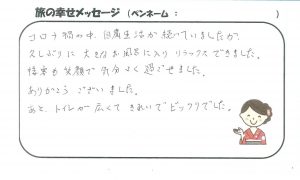 旅の幸せメッセージ (ペンネーム: )
コロナ禍の中、自粛生活が続いていましたが、
久しぶりに大きなお風呂に入りリラックスできました。
接客も笑顔で気分よく過ごせました。
ありがとうございました。
あと、トイレが広くてきれいでビックリでした。